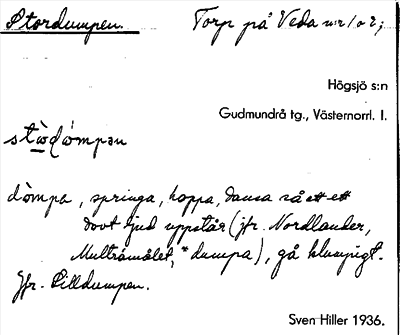 Stordumpen. Torp på Veda nr 1 o 2;
Högsjö s:n
Gudmundrå tg., Västernorrl. l.
stòdòmpən
dòmpa, springa, hoppa, dansa så att ett
dovt ljud uppstår (jfr. Nordlander,
Multråmålet, *dumpa), gå klumpigt.
Jfr. Lilldumpen.
Sven Hiller 1936.